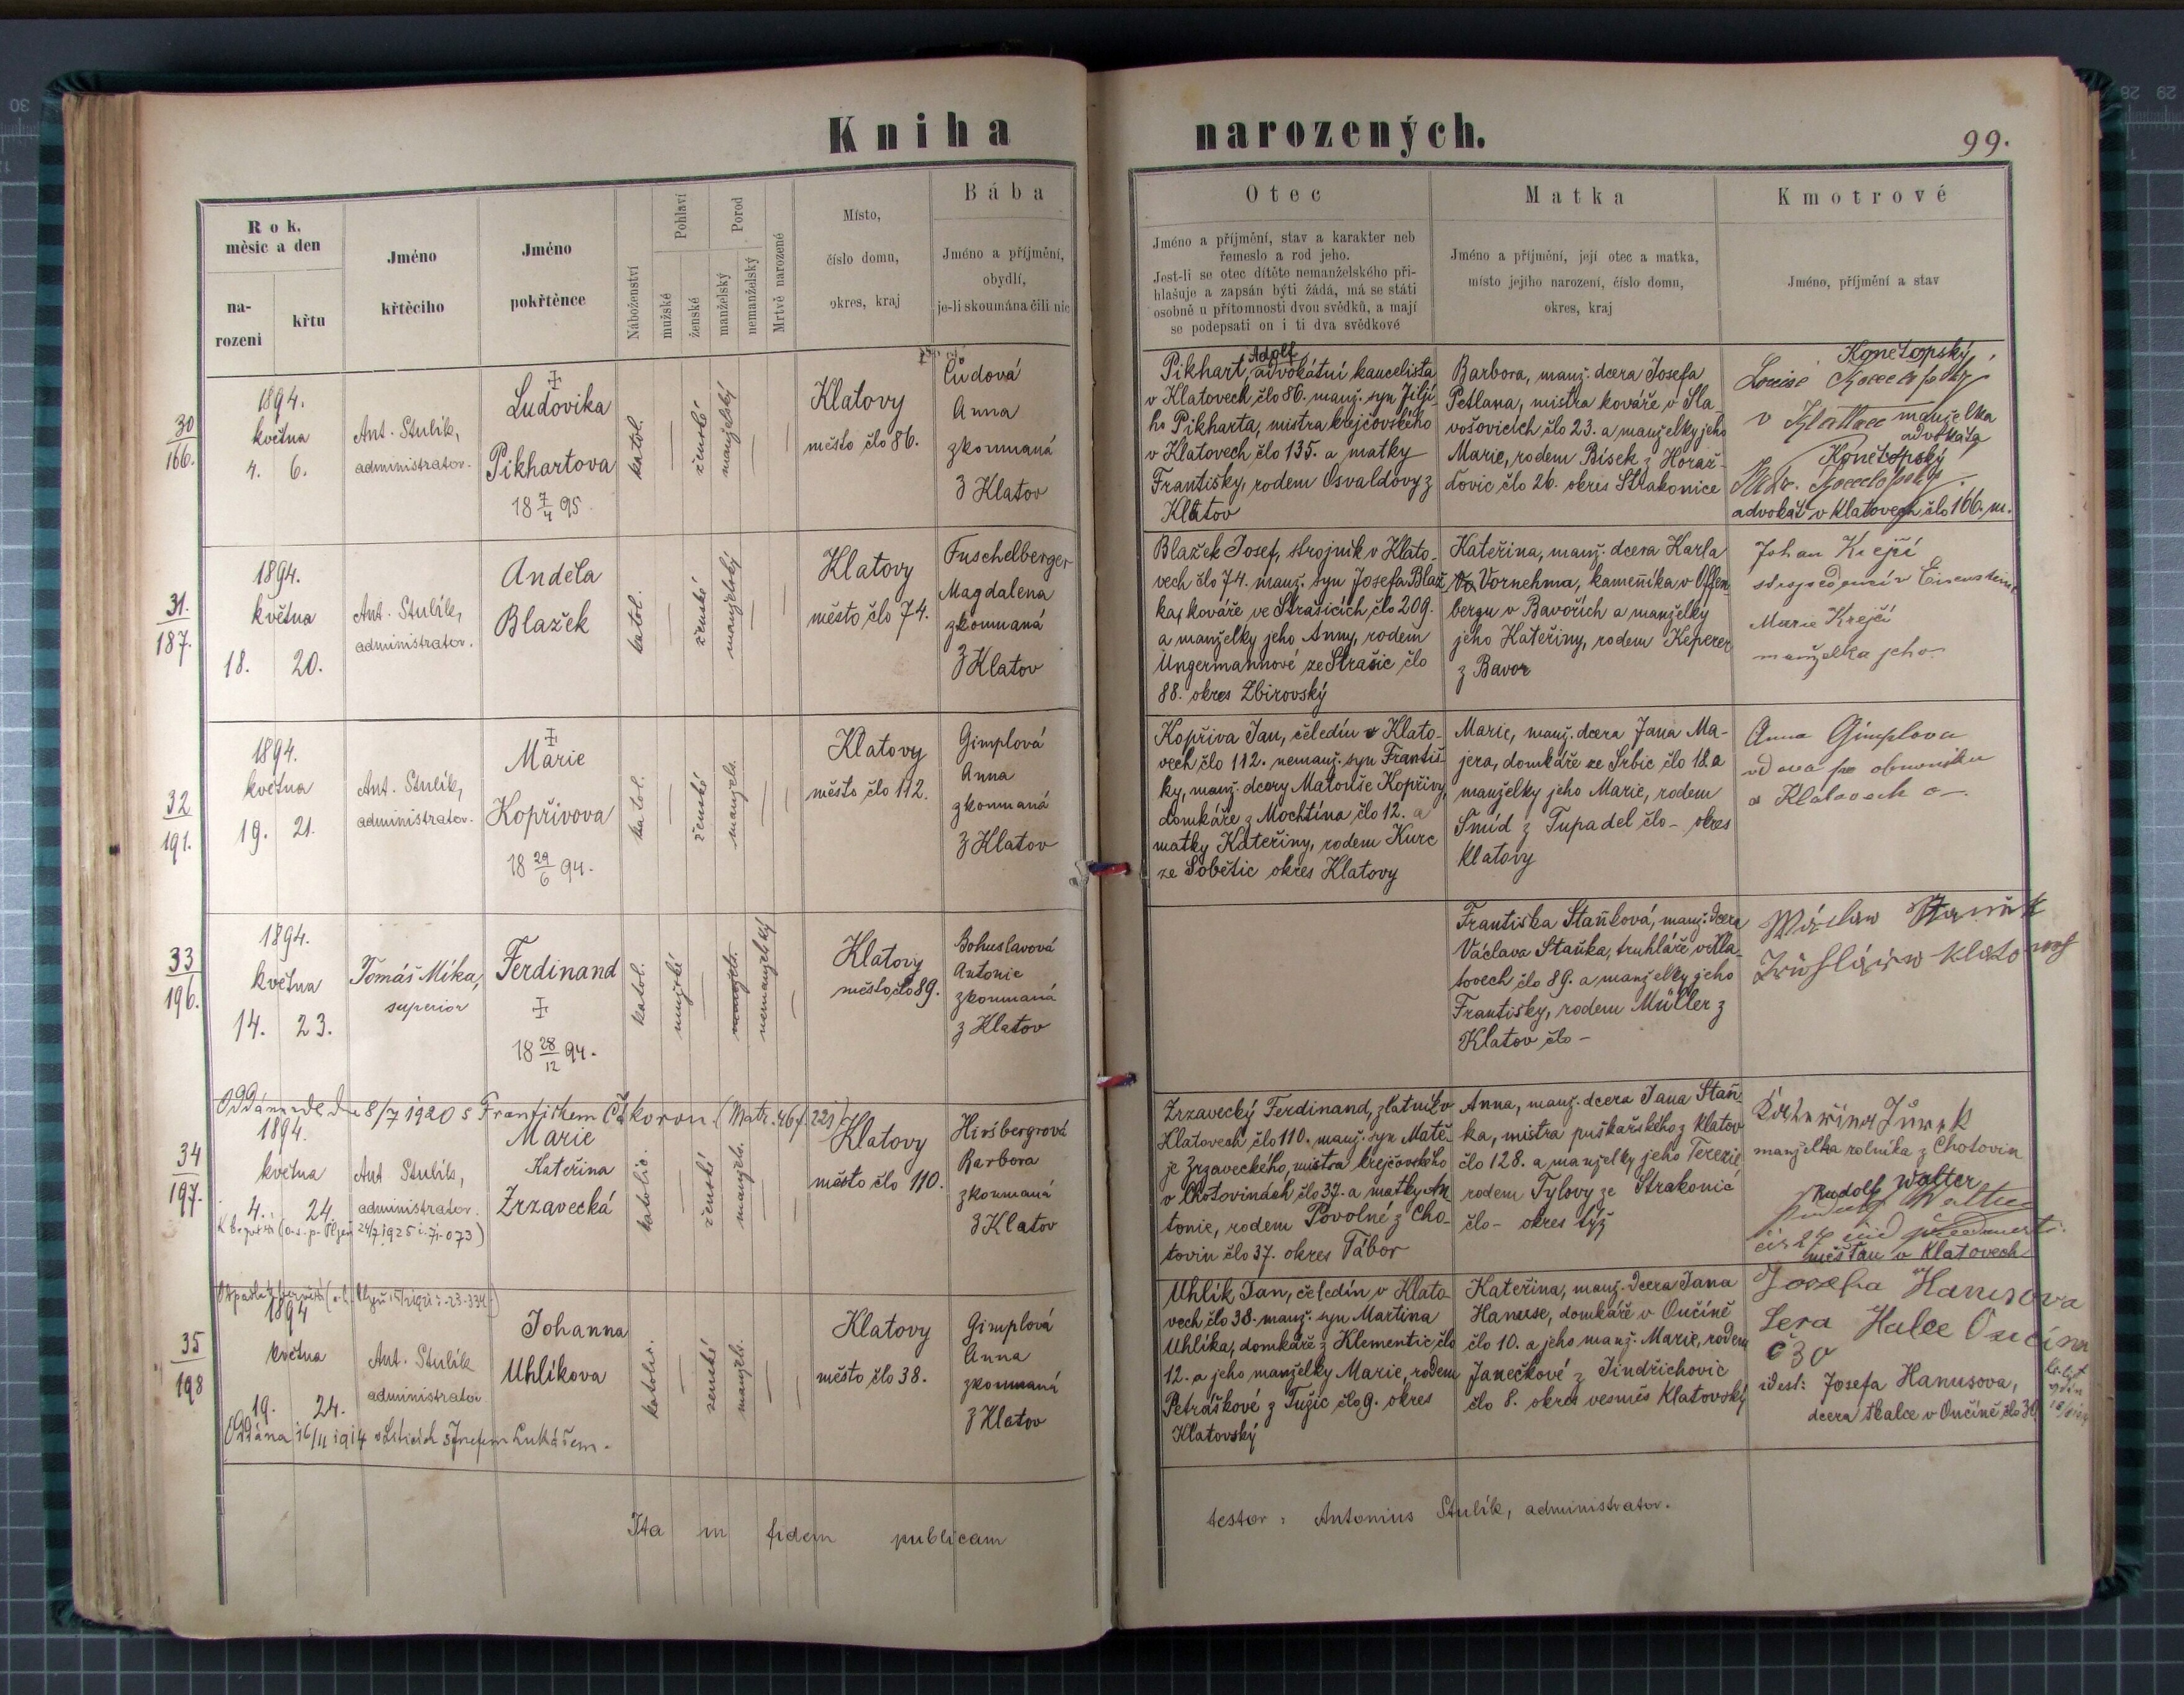 Kniha narozených.
99.
Rok,
měsíc a den
na-
rození
křtu
Jméno
křtěcího
Jméno
pokřtěnce
Náboženství
Pohlaví
mužské
ženské
Porod
manželský
nemanželský
Mrtvě narozené
Místo,
číslo domu,
okres, kraj
Bába
Jméno a příjmění,
obydlí,
je-li skoumána čili nic
Otec
Jméno a příjmění, stav a karakter neb
řemeslo a rod jeho.
Jest-li se otec dítěte nemanželského při-
hlašuje a zapsán býti žádá, má se státi
osobně u přítomnosti dvou svědků, a mají
se podepsati on i ti dva svědkové
Matka
Jméno a příjmění, její otec a matka,
místo jejího narození, číslo domu,
okres, kraj
Kmotrové
Jméno, příjmění a stav
30
166.
1894.
května
4. 6.
Ant. Stulík,
administrator.
Ludovika
Pikhartova
18 7/4 95.
katol.
ženské
manželský
Klatovy
město člo 86.
Čudová
Anna
zkoumaná
z Klatov
Adolf
Pikhart, advokátní kancelista
v Klatovech člo 86. manž. syn Jiljí-
ho Pikharta, mistra krejčovského
v Klatovech člo 135. a matky
Františky, rodem Osvaldovy z
Klatov
Barbora, manž. dcera Josefa
Petlana, mistra kováře v Sla-
vošovicích člo 23. a manželky jeho
Marie, rodem Bísek z Horaž-
ďovic člo 26. okres Strakonice
Konětopský
Louise
v manželka
advokáta
Konětopský
advokát v Klatovech člo 166. m.
31.
187.
1894.
května
18. 20.
Ant. Stulík,
administrator.
Anděla
Blažek
katol.
ženské
manželský
Klatovy
město člo 74.
Fuschelberger
Magdalena
zkoumaná
z Klatov
Blažek Josef, strojník v Klato-
vech člo 74. manž. syn Josefa Blaž-
ka, kováře ve Strašicích člo 209.
a manželky jeho Anny, rodem
Ungermannové ze Strašic člo
88. okres Zbirovský
Kateřina, manž. dcera Karla
Vornehma, kameníka v Offen-
bergu v Bavořích a manželky
jeho Kateřiny, rodem Keperer
z Bavor
Johan Krejčí
Marie Krejčí
manželka jeho
32
191.
1894.
května
19. 21.
Ant. Stulík,
administrator.
Marie
Kopřivova
18 29/6 94.
katol.
ženské
manžels.
Klatovy
město člo 112.
Gimplová
Anna
zkoumaná
z Klatov
Kopřiva Jan, čeledín v Klato-
vech člo 112. nemanž. syn Františ-
ky, manž. dcery Matouše Kopřivy,
domkáře z Mochtína člo 12. a
matky Kateřiny, rodem Kurc
ze Sobětic okres Klatovy
Marie, manž. dcera Jana Ma-
jera, domkáře ze Srbic člo 18 a
manželky jeho Marie, rodem
Smíd z Tupadel člo - okres
Klatovy
Anna Gimplova
vdova po obuvníku
v Klatovech
33
196.
1894.
května
14. 23.
Tomáš Míka,
superior
Ferdinand
18 28/12 94.
katol.
mužské
manžels.
nemanželský
Klatovy
město čl. 89.
Bohuslavová
Antonie
zkoumaná
z Klatov
Františka Staňková, manž. dcera
Václava Staňka, truhláře v Kla-
tovech člo 89. a manželky jeho
Františky, rodem Müller z
Klatov člo -
Wáclaw Staněk
34
197.
Oddána dne 8/7 1920 s Františkem (Matr. 46 f. 221)
1894.
května
4. 24.
Ant Stulík,
administrátor.
Marie
Kateřina
Zrzavecká
katolic.
ženské
manžels.
Klatovy
město člo 110.
Hiršbergrová
Barbora
zkoumaná
z Klatov
Zrzavecký Ferdinand, zlatník v
Klatovech člo 110. manž. syn Matě-
je Zrzaveckého, mistra krejčovského
v Chotovinách člo 37. a matky An-
tonie, rodem Povolné z Cho-
tovin člo 37. okres Tábor
Anna, manž. dcera Jana Staň-
ka, mistra puškařského z Klatov
člo 128. a manželky jeho Terezie
rodem Tylovy ze Strakonic
člo - okres týž
Kateřina
manželka rolníka z Chotovin
Rudolf Walter
měšťan v Klatovech
35
198
1894
května
19. 24.
Ant. Stulík
administrátor
Johanna
Uhlíkova
katolic.
ženské
manžels.
Klatovy
město člo 38.
Gimplová
Anna
zkoumaná
z Klatov
Uhlík Jan, čeledín v Klato-
vech člo 38. manž. syn Martina
Uhlíka, domkáře z Klementic člo
12. a jeho manželky Marie, rodem
Petráškové z Tužic člo 9. okres
Klatovský
Kateřina, manž. dcera Jana
Hanuse, domkáře v Ončíně
člo 10. a jeho manž. Marie, rodem
Janečkové z Jindřichovic
člo 8. okres vesměs Klatovský
Josefa Hanusova
č 30
idest: Josefa Hanusova,
dcera tkalce v Ončíně člo 30
Oddána 16/II 1914 s Josefem Lukášem.
Ita in fidem publicam
testor: Antonius Stulík, administrator.